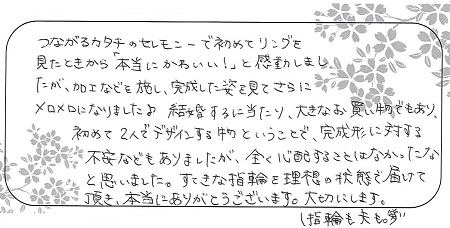 つながるカタチのセレモニーで初めてリングを
見たときから「本当にかわいい!」と感動しまし
たが、加工などを施し、完成した姿を見てさらに
メロメロになりましたよ 結婚するに当たり、大きなお買い物でもあり、
初めて2人でデザインする物ということで、完成形に対する
不安などもありましたが、全く心配することはなかったな
と思いました。すてきな指輪を理想の状態で届けて
頂き、本当にありがとうございます。大切にします。
(指輪も夫も。笑)